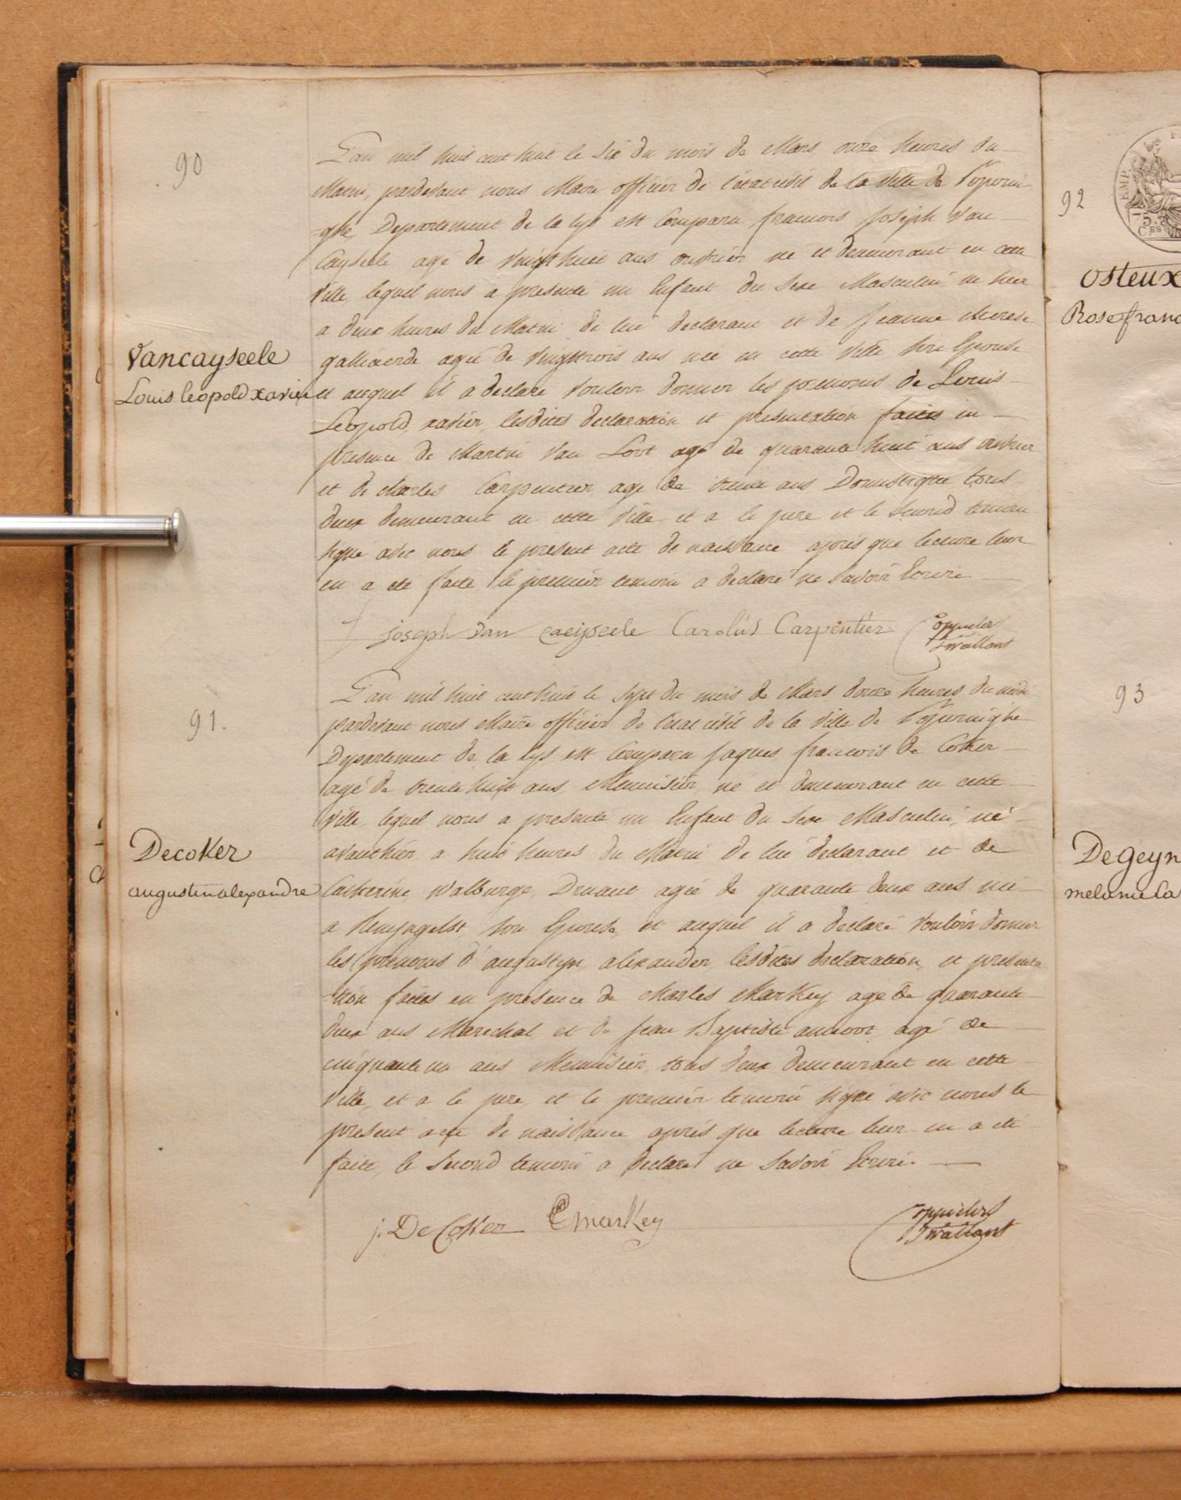 90
Vancayseele
Louis leopold xavier
L'an mil huit cent huit le six du mois de Mars onze heures du
Matin, pardevant nous Maire officier de l'état civil de la Ville de Poperin
ghe Departement de la Lys est Comparu francois Joseph Van
Cayseele agé de Vingthuit ans ouvrier né et demeurant en cette
Ville, lequel nous a presenté un Enfant du Sexe Masculin né hier
a deux heures du Matin de lui declarant et de Jeanne therese
galliaerde agée de Vingttrois ans née en cette Ville Son Epouse
et auquel il a declaré Vouloir donner les prenoms de Louis
Leopold, xavier, lesdites declaration et presentation faites in
presence de Martin Van Loot agé de quarante huit ans ouvrier
et de Charles Carpentier, age de trente ans Domestique tous
deux demeurant en cette Ville et a le pere et le second temoin
signé avec nous le present acte de naissance après que lecture leur
en a eté faite le premier temoin a declaré ne Savoir Ecrire
Joseph Van Caeijseele Carolus Carpentier
91.
Decoker
augustin alexandre
L'an mil huit cent huit le Sept du mois de Mars douze heures du midi
pardevant nous Maire officier de l'état civil de la Ville de Poperinghe
Departement de la Lys est Comparu Jaques francois De Coker
agé de trente huit ans Menuisier, né et demeurant en cette
Ville, lequel nous a presenté un Enfant du Sexe Masculin, né
avanthier a huit heures du Matin de lui declarant et de
Catherine Walburge, Druant agée de quarante deux ans née
a Reninghelst Son Epouse, et auquel il a declaré Vouloir donner
les prenoms d'augustyn alexander, lesdites declaration, et presenta
tion faites en presence de Charles Markey agé de quarante
deux ans Marechal et de Jean Baptiste agé de
cinquante un ans Menuisier, tous deux demeurant en cette
Ville, et a le pere et le premier temoin signé avec nous le
present acte de naissance après que lecture leur en a eté
faite, le Second temoin a declaré ne Savoir Ecrire.
j. De Coker C marKey
92
Osteux
Rose franc
93
De geyn
melanie Ca